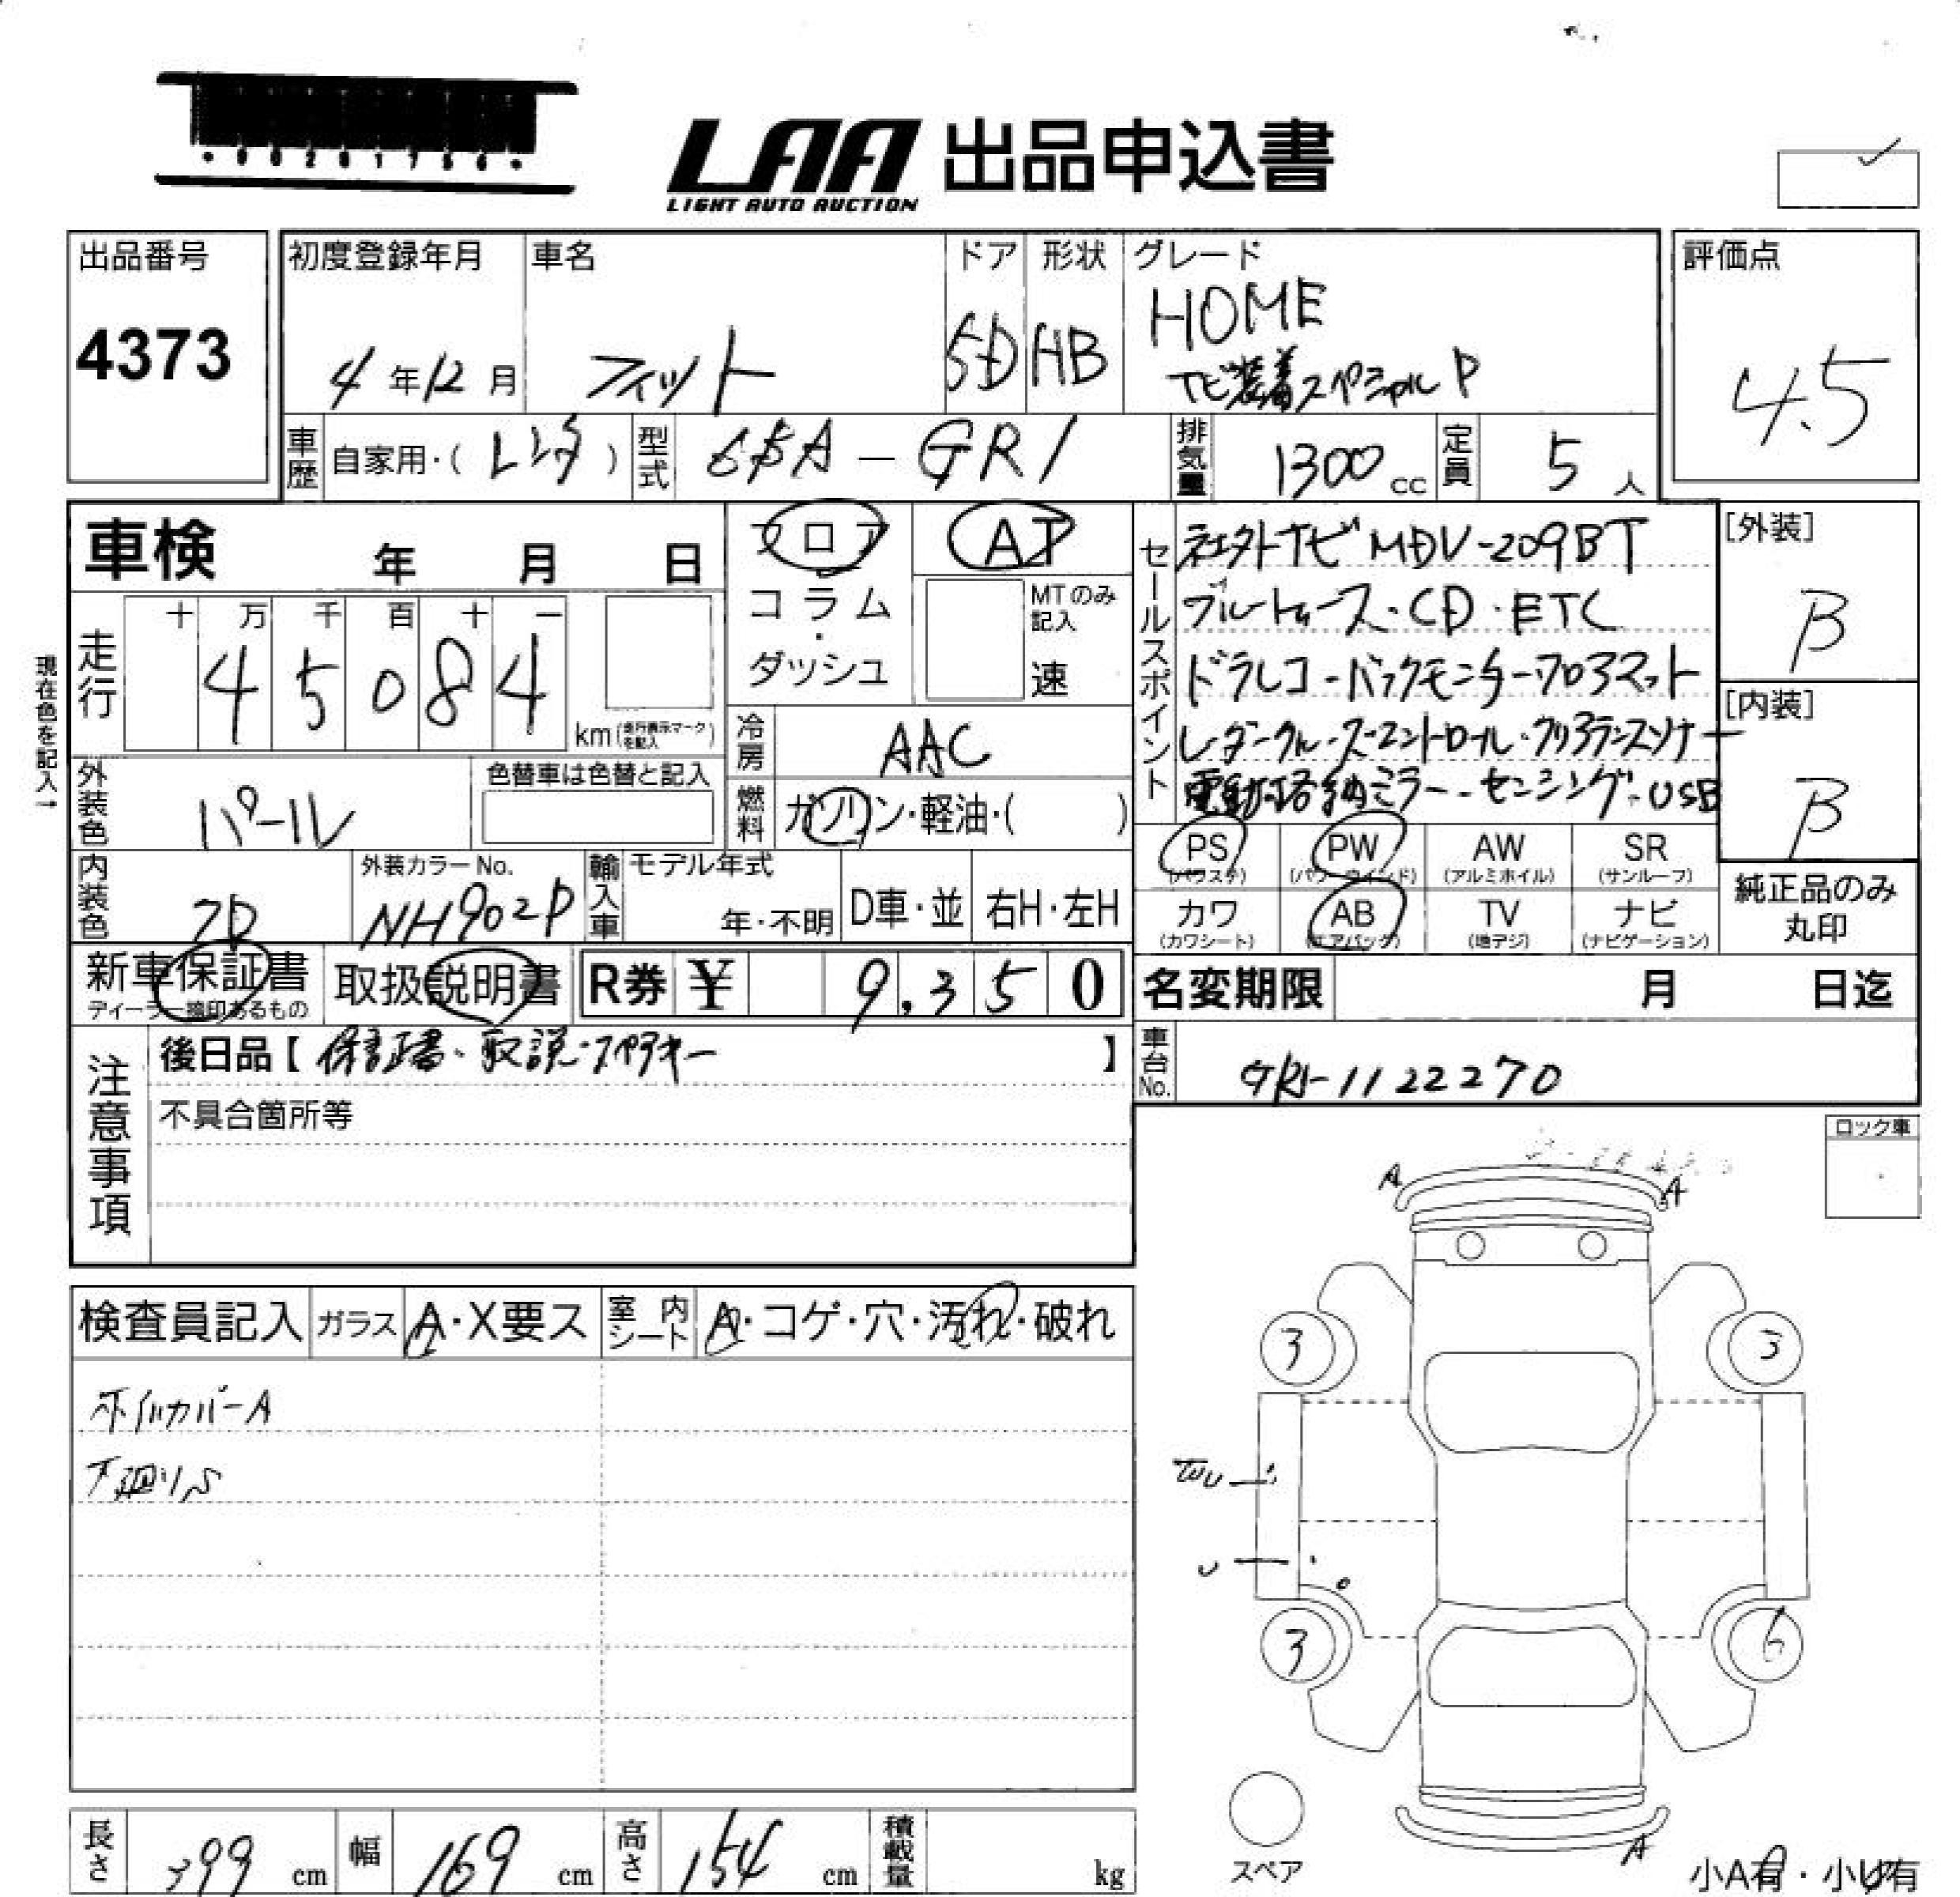 LAA 出品申込書
LIGHT AUTO AUCTION
出品番号
4373
初度登録年月
4年12月
車名
フィット
ドア
5D
形状
HB
グレード
HOME
ナビ装着スペシャルP
評価点
4.5
車歴
自家用・(レンタ)
型式
6BA-GR1
排気量
1300cc
定員
5人
車検 年 月 日
フロア
コラム
・
ダッシュ
AT
MTのみ記入
速
セールスポイント
社外ナビMDV-209BT
ブルートゥース・CD・ETC
ドラレコ・バックモニター・フロアマット
レーダークルーズコントロール・クリアランスソナー
電動格納ミラー・センシング・USB
[外装]
B
[内装]
B
現在色を記入→
走行
十 万 千 百 十 一
4 5 0 8 4
km(走行表示マークを記入)
冷房
AAC
燃料
ガソリン・軽油・( )
外装色
パール
色替車は色替と記入
内装色
外装カラーNo.
NH902P
輸入車
モデル年式
年・不明
D車・並
右H・左H
PS
(パワステ)
PW
(パワーウインド)
AW
(アルミホイル)
SR
(サンルーフ)
カワ
(カワシート)
AB
(エアバッグ)
TV
(地デジ)
ナビ
(ナビゲーション)
純正品のみ
丸印
新車保証書
ディーラー捺印あるもの
取扱説明書
R券 ¥ 9,350
名変期限 月 日迄
注意事項
後日品【保証書・取説・スペアキー】
不具合箇所等
車台No.
GR1-1122270
ロック車
A
A
検査員記入
ガラス
A・X要ス
室内シート
A・コゲ・穴・汚れ・破れ
ホイルカバーA
下廻りS
3
3
U
3
6
スペア
A
小A有・小U有
長さ
399cm
幅
169cm
高さ
154cm
積載量
kg